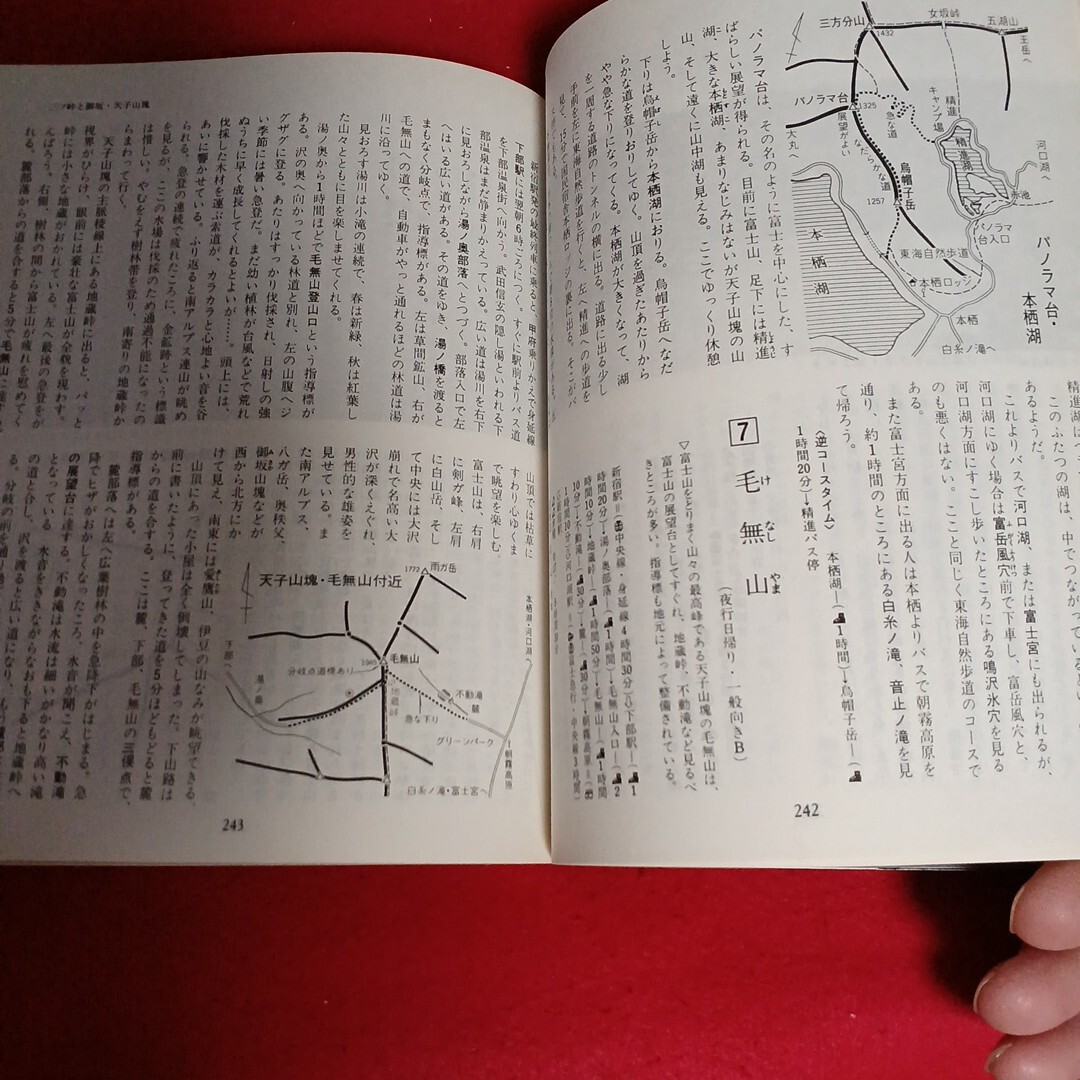 三方分山
1432
女坂峠
五湖山
王岳へ
パノラマ台
1325
展望がよい
大丸へ
急な道
なだらかな道
キャンプ場
精進
精進湖
河口湖へ
赤池
烏帽子岳
1257
パノラマ
台入口
東海自然歩道
本栖ロッジ
本栖湖
本栖
白糸ノ滝へ
パノラマ台・
本栖湖
パノラマ台は、その名のように富士を中心にした、す
ばらしい展望が得られる。目前に富士山、足下には精進
湖、大きな本栖湖、あまりなじみはないが天子山塊の山
山、そして遠くに山中湖も見える。ここでゆっくり休憩
しよう。
下りは烏帽子岳から本栖湖におりる。烏帽子岳へなだ
らかな道を登りおりしてゆく。山頂を過ぎたあたりから
やや急な下りになってくる。本栖湖が大きくなって、湖
を一周する道路のトンネルの横に出る。道路に出る少し
手前を左に東海自然歩道を行くと、左へ精進への歩道を
このふたつの湖は、
あるようだ。
これよりバスで河口湖、または富士宮にも出られるが、
河口湖にゆく場合は富岳風穴前で下車し、富岳風穴と、
河口湖方面にすこし歩いたところにある鳴沢氷穴を見る
のも悪くはない。ここと同じく東海自然歩道のコースで
ある。
また富士宮方面に出る人は本栖よりバスで朝霧高原を
通り、約1時間のところにある白糸ノ滝、音止ノ滝を見
て帰ろう。
〈逆コースタイム〉 本栖湖―(1時間)→烏帽子岳―(
1時間20分)→精進バス停
7 毛無山
けなしやま
(夜行日帰り・一般向きB)
▽富士山をとりまく山々の最高峰である天子山塊の毛無山は、
富士山の展望台としてすぐれ、地蔵峠、不動滝など見るべ
きところが多い。指導標も地元によって整備されている。
新宿駅=(中央線・身延線4時間30分)=下部駅―(1
242
峠と御坂・天子山塊
新宿駅発の最終列車に乗ると、甲府乗りかえで身延線
下部駅には翌朝6時ころにつく。すぐに駅前よりバス道
を下部温泉街へ向かう。武田信玄の隠し湯といわれる下
部温泉はまだ静まりかえっている。広い道は湯川を右下
に見おろしながら湯ノ奥部落へとつづく。部落入口で左
へはいる広い道がある。その道をゆき、湯ノ橋を渡ると
まもなく分岐点で、指導標がある。左は草間鉱山、右が
毛無山への道で、自動車がやっと通れるほどの林道は湯
川に沿ってゆく。
見おろす湯川は小滝の連続で、春は新緑、秋は紅葉し
た山々とともに目を楽しませてくれる。
湯ノ奥から1時間ほどで毛無山登山口という指導標が
ある。沢の奥へ向かっている林道と別れ、左の山腹へジ
グザグに登る。あたりはすっかり伐採され、日射しの強
い季節には暑い急登だ。まだ幼い植林が台風などで荒れ
ぬうちに早く成長してくれるとよいが……。頭上には、
伐採した木材を運ぶ索道が、カラカラと心地よい音を谷
あいに響かせている。ふり返ると南アルプス連山が眺め
られる。急登の連続で疲れたころに、金鉱跡という標識
を見るが、ここの水場は伐採のため通過不能になったの
は惜しい。やむをえず樹林帯を登り、南寄りの地蔵峠か
らまわって行く。
天子山塊の主脈稜線上にある地蔵峠に出ると、パッと
視界がひらけ、眼前には豪壮な富士山が全貌を現わす。
峠には小さな地蔵がおかれている。左へ最後の急登をが
んばろう。右側、樹林の間から富士山が疲れを慰めてく
れる。麓部落からの道を合すると5分で毛無山に
山頂では枯草に
すわり心ゆくま
で眺望を楽しむ。
富士山は、右肩
に剣ガ峰、左肩
に白山岳、そし
て中央には大沢
崩れで名高い大
沢が深くえぐれ、
男性的な雄姿を
見せている。ま
た南アルプス、
八ガ岳、奥秩父、
御坂山塊などが
西から北方にか
けて見え、南東には愛鷹山、伊豆の山なみが眺望できる。
山頂にあった小屋は全く倒壊してしまった。下山路は
前に書いたように、登ってきた道を5分ほどもどると麓
からの道を合する。ここは麓、下部、毛無山の三俣点で、
指導標がある。
麓部落へは左へ広葉樹林の中を急降下がはじまる。急
降下でヒザがおかしくなったころ、水音が聞こえ、不動滝
の展望台に達する。不動滝は水流は細いがかなり高い滝
である。水音をききながらなおも下ると地蔵峠へ
の道と合し、沢を渡ると広い道になり、
天子山塊・毛無山付近
1772
雨ガ岳
本栖湖・河口湖
毛無山
1965
分岐点道標あり
地蔵峠
不動滝
麓
急な下り
グリーンパーク
下部へ
湯ノ奥
朝霧高原
白糸ノ滝・富士宮へ
243